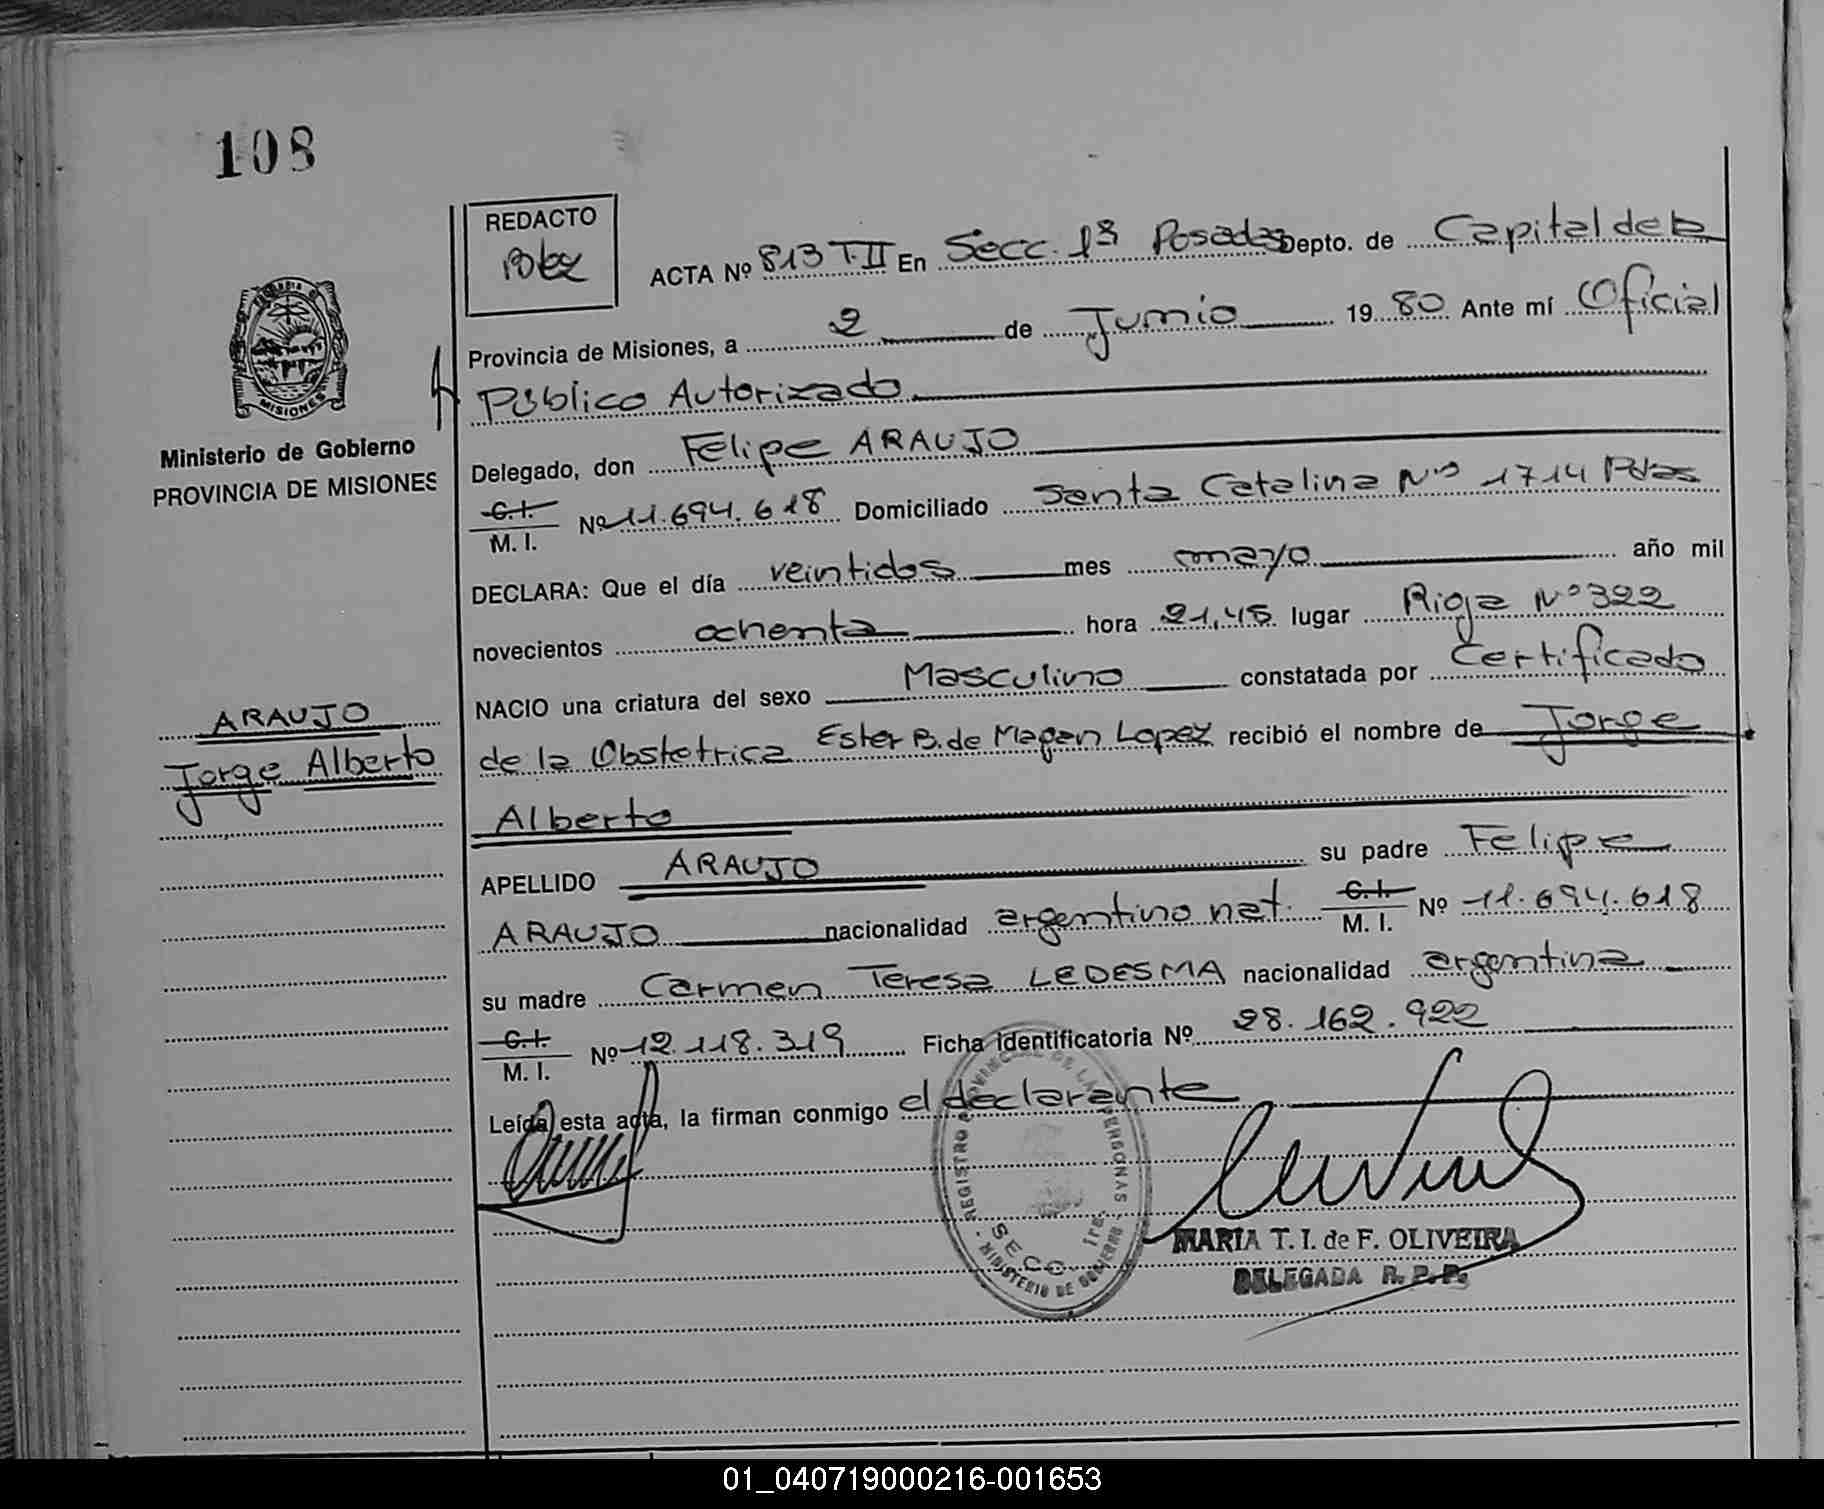 108
REDACTO
ACTA Nº 813 T.II En Secc. 1ª Posadas Depto. de Capital de la
Provincia de Misiones, a 2 de Junio 19 80 Ante mí Oficial
Público Autorizado
MISIONES
Ministerio de Gobierno
PROVINCIA DE MISIONES
Delegado, don Felipe ARAUJO
C.I.
M. I. Nº 11.694.618 Domiciliado Santa Catalina Nº 1714 Pdas
DECLARA: Que el día veintidos mes mayo año mil
novecientos ochenta hora 21,45 lugar Rioja Nº 322
NACIO una criatura del sexo Masculino constatada por Certificado
de la Obstetrica Ester B. de Magan Lopez recibió el nombre de Jorge
Alberto
ARAUJO
Jorge Alberto
APELLIDO ARAUJO su padre Felipe
ARAUJO nacionalidad argentino nat. C.I.
M. I. Nº 11.694.618
su madre Carmen Teresa LEDESMA nacionalidad argentina
C.I.
M. I. Nº 12.118.319 Ficha Identificatoria Nº 28.162.922
Leída esta acta, la firman conmigo el declarante
REGISTRO PROVINCIAL DE LAS PERSONAS
SECC. 1ra.
MINISTERIO DE GOBIERNO
MARIA T. I. de F. OLIVEIRA
DELEGADA R. P. P.
01_040719000216-001653